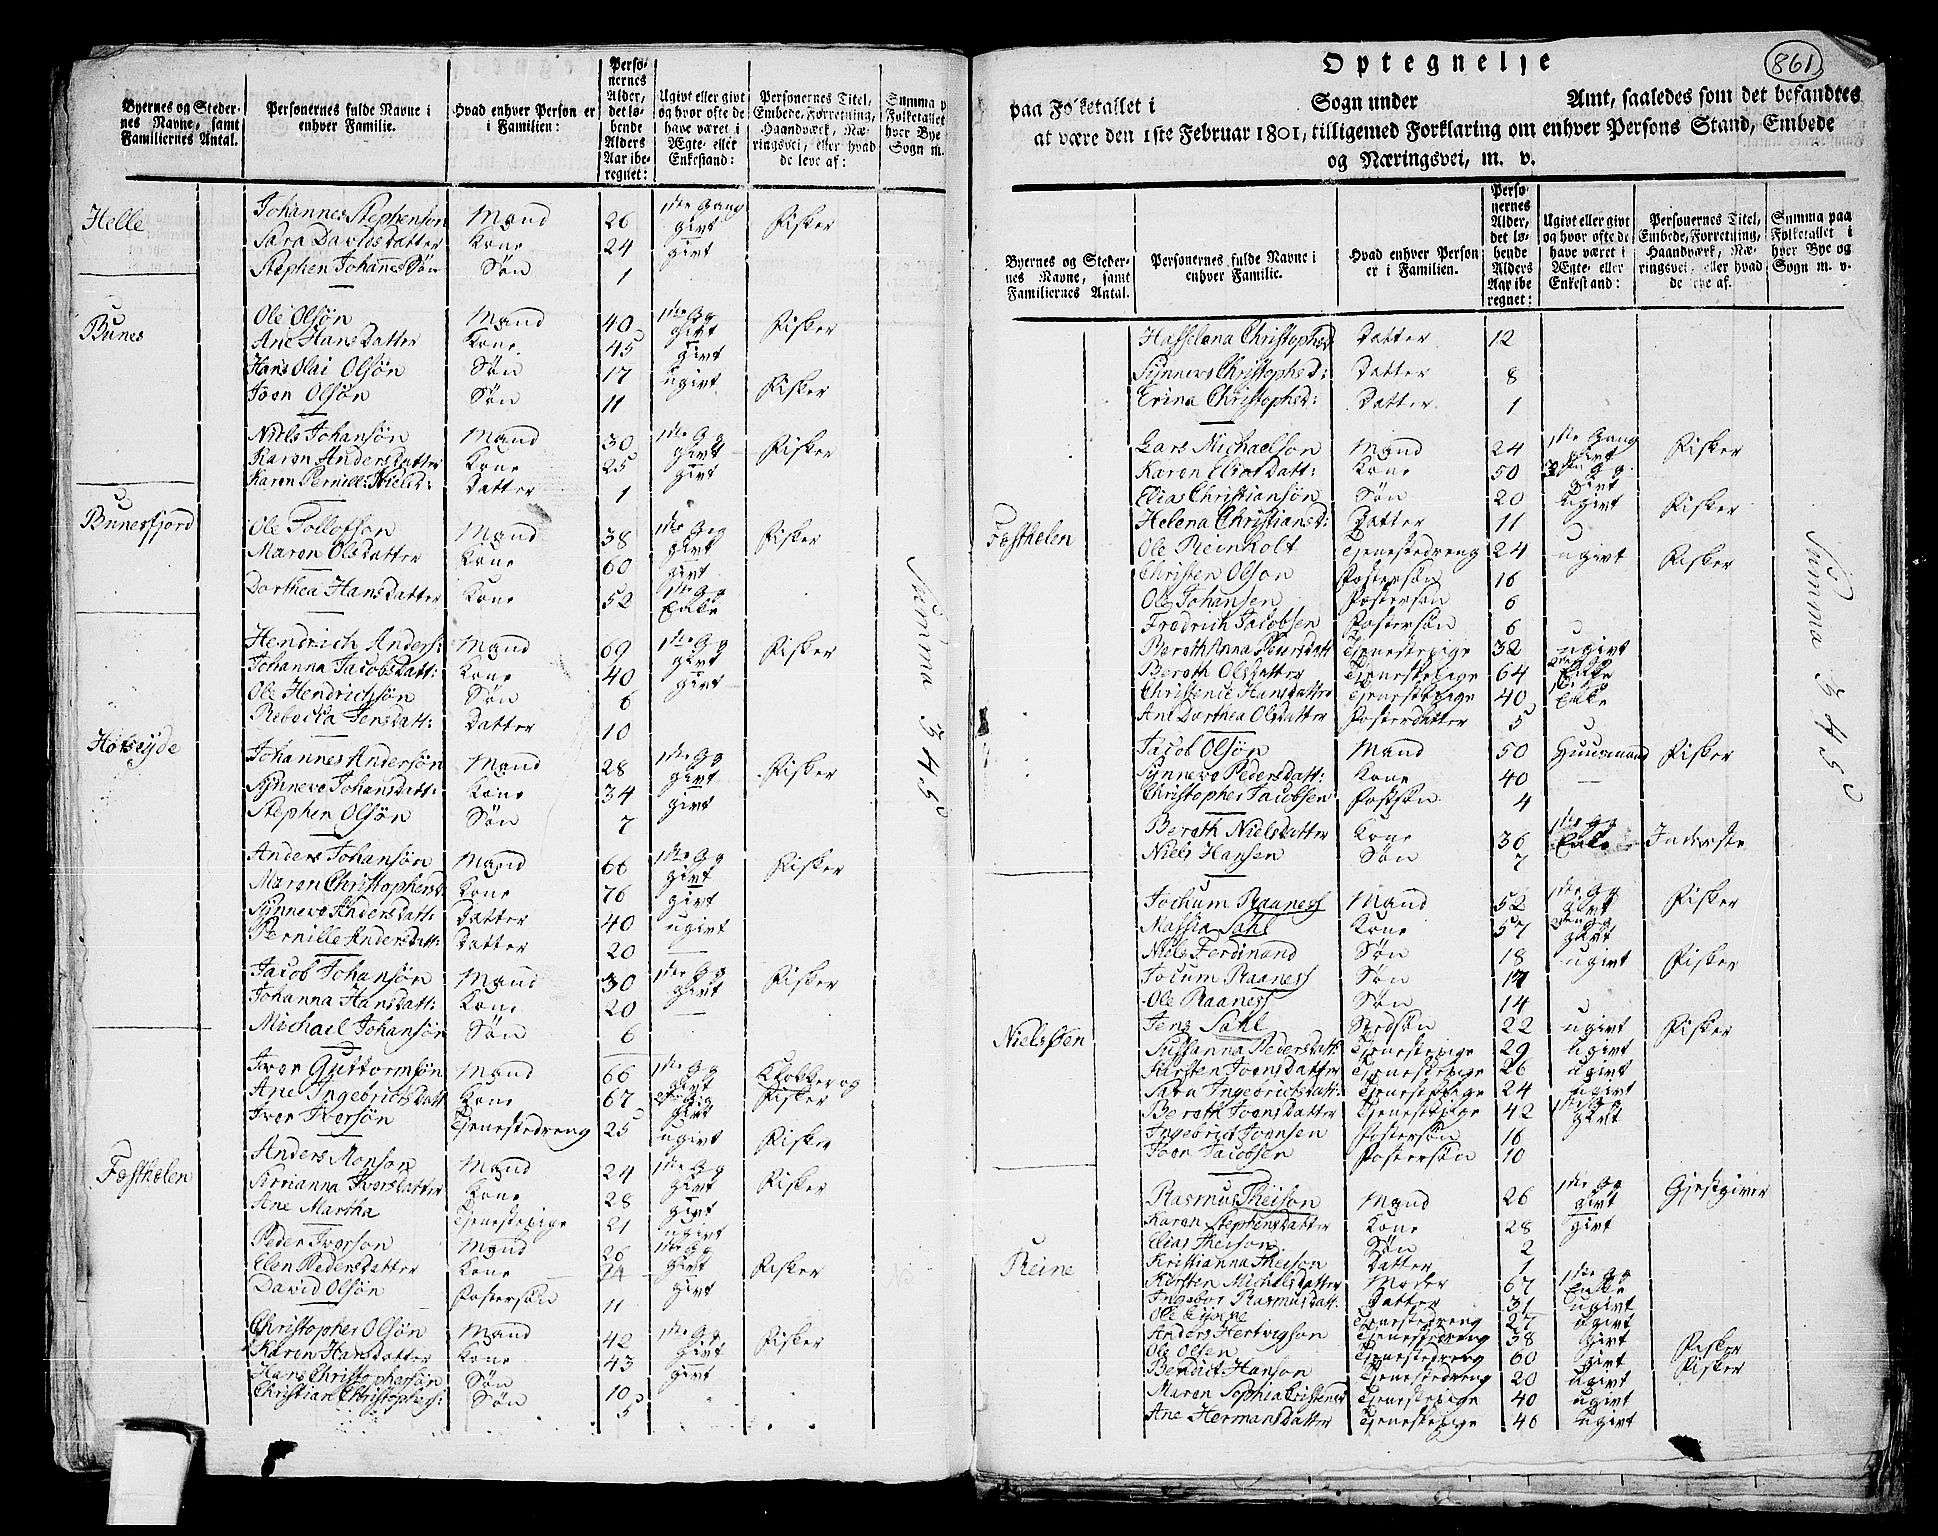 Byernes og Steder-
nes Navne, samt
Familiernes Antal.
Personernes fulde Navne i
enhver Familie.
Hvad enhver Person er
i Familien:
Perso-
nernes
Alder,
det lø-
bende
Alders
Aar ibe-
regnet:
Ugivt eller givt
og hvor ofte de
have været i
Ægte- eller
Enkestand:
Personernes Titel,
Embede, Forretning,
Haandværk, Næ-
ringsvei, eller hvad
de leve af:
Summa p
Folketallet
hver Bye
Sogn m.
Helle
Johannes Stephensøn Mand 26 1ste Gang givt Fisker
Sara Davidsdatter Kone 24 givt
Stephen JohannesSøn Søn 1
Bunes
Ole Olsøn Mand 40 1ste Gg givt Fisker
Ane Hansdatter Kone 45 givt
Hans Olai Olsøn Søn 17 ugivt Fisker
Joen Olsøn Søn 11
Niels Johansøn Mand 30 1ste Gg givt Fisker
Karen Andersdatter Kone 25 givt
Karen Pernill: Nielsd: Datter 1
Bunesfjord
Ole Tollofson Mand 38 1ste Gg givt Fisker
Maren Olsdatter Kone 60 givt
Dorthea Hansdatter Kone 52 1ste Gg Enke
Hendrich Anders: Mand 69 1ste Gg givt Fisker
Johanna Jacobsdatt: Kone 40 givt
Ole Hendrichsøn Søn 6
Rebecka Jensdatt: Datter 10
Johannes Andersøn Mand 28 1ste Gg givt Fisker
Synneve Johansdatt: Kone 34 givt
Stephen Olsøn Søn 7
Anders Johansøn Mand 66 1ste Gg givt Fisker
Maren Christophersd Kone 76 givt
Synneve Andersdatt: Datter 40 ugivt
Pernille Andersdatt: Datter 20
Jacob Johansøn Mand 30 1ste Gg givt Fisker
Johanna Hansdatt: Kone 20
Michael Johansøn Søn 6
Iver Guttormsøn Mand 66 1ste Gg givt Klokker og
Ane Ingebrictsdatt Kone 67 2den Gg givt Fisker
Iver Iversøn Tjenestedreng 25 ugivt Fisker
Festhelen
Anders Monson Mand 24 1ste Gg givt Fisker
Kirrianna Iversdatter Kone 28 givt
Ane Martha Tjenestepige 21 ugivt
Peder Iverson Mand 26 1ste Gg givt
Elen Pedersdatter Kone 24 givt Fisker
David Olsøn Fostersøn 11
Christopher Olsøn Mand 42 1ste Gg givt Fisker
Karen Hansdatter Kone 43 givt
Hans Christophersøn Søn 10
Christian Christophers: Søn 5
Summa 345
861
Optegnelse
paa Folketallet i Sogn under Amt, saaledes som det befandtes
at være den 1ste Februar 1801, tilligemed Forklaring om enhver Persons Stand, Embede
og Næringsvei, m. v.
Byernes og Steder-
nes Navne, samt
Familiernes Antal.
Personernes fulde Navne i
enhver Familie.
Hvad enhver Person
er i Familien.
Perso-
nernes
Alder,
det lø-
bende
Alders
Aar ibe-
regnet:
Ugivt eller givt
og hvor ofte de
have været i
Ægte- eller
Enkestand:
Personernes Titel,
Embede, Forretning,
Haandværk, Næ-
ringsvei, eller hvad
de leve af.
Summa paa
Folketallet i
hver Bye og
Sogn m. v.
Hasselena Christophd Datter 12
Synneve Christophed: Datter 8
Erina Christophed: Datter 1
Lars Michaelson Mand 24 1ste Gang givt Fisker
Karen Eliasdatt: Kone 50 2den Gg. givt
Elias Christiansøn Søn 20 ugivt Fisker
Helena Christiansd: Datter 11
Festhelen
Ole Reinholt Tjenestedreng 24 ugivt Fisker
Christen Olson Fostersøn 16
Ole Johansen Fostersøn 6
Fredrich Jacobsen Fostersøn 6
Bereth Anna Peersdatt Tjenestepige 32 ugivt
Bereth Olsdatter Tjenestepige 64 Enke
Christense Hansdatter Tjenestepige 40 Enke
Ane Dorthea Olsdatter Fosterdatter 5
Jacob Olsøn Mand 50 Huusmand Fisker
Synneve Pedersdatt: Kone 40
Christopher Jacobsen Fostsøn 4
Bereth Nielsdatter Kone 36 1ste Gg Enke Inderste
Niels Hansen Søn 7
Jochum Raaness Mand 52 1ste Gg givt Fisker
Massia Sahl Kone 57 2den Gg givt
Niels Ferdinand Søn 18 ugivt Fisker
Jocum Raaness Søn 17
Ole Raaness Søn 14
Nielssten
Jens Sahl Stedsøn 22 ugivt Fisker
Sussanna Pedersdatt: Tjenestepige 29 ugivt
Kirsten Joensdatter Tjenestepige 26 ugivt
Sara Ingebrictsdatt: Tjenestepige 24 ugivt
Bereth Joensdatter Tjenestepige 42 1ste Gg givt
Ingebrict Joensen Fostersøn 16
Joen Jacobsen Fostersøn 10
Rasmus Theison Mand 26 1ste Gg givt Gjestgiver
Karen Stephensdatter Kone 28 givt
Reine
Elias Theison Søn 2
Kristianna Theison Datter 1
Kersten Michelsdatter Moder 67 1ste Gg Enke
Ingebor Rasmusdatt: Datter 31 ugivt
Ole Tjenestedreng 27 ugivt
Anders Hertvigson Tjenestedreng 38 givt Fisker
Ole Olsen Tjenestedreng 60 givt Fisker
Bendict Hanson Tjenestedreng 20 ugivt
Maren Sophia Tjenestepige 40 ugivt
Ane Hermansdatter Tjenestepige 46 ugivt
Summa 345